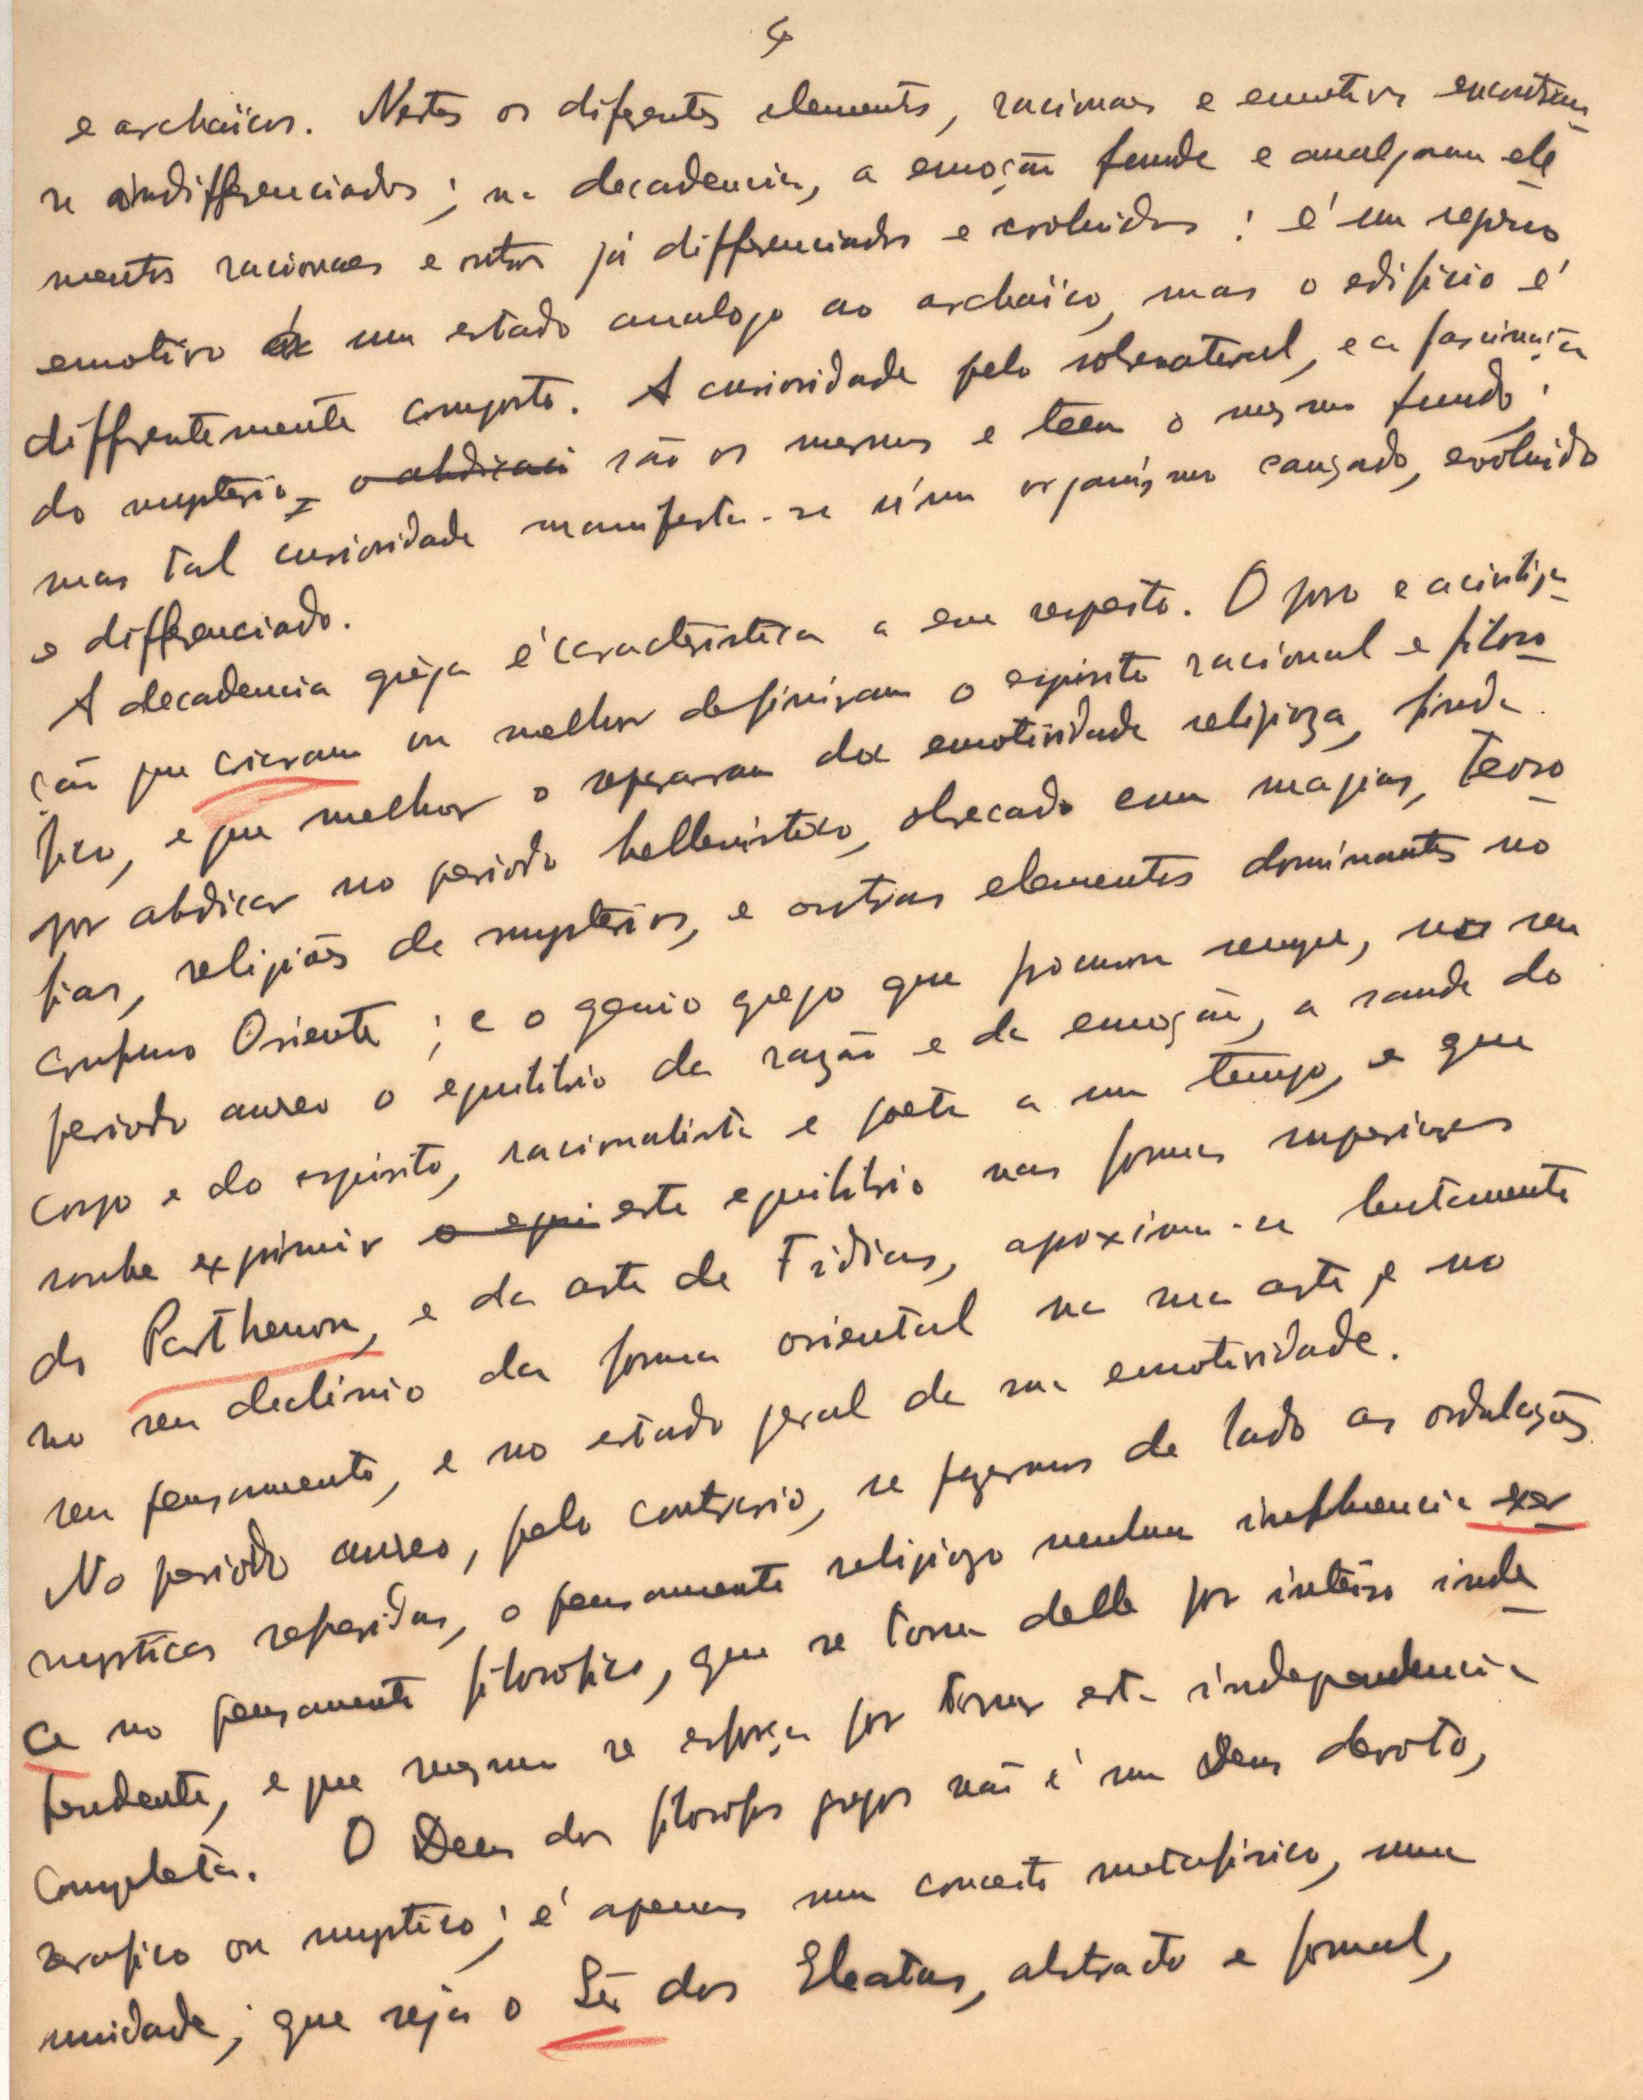 4
e archaïcos. Nestes os diferentes elementos, racionaes e emotivos encontram
se indifferenciados; na decadencia, a emoção funde e amalgama ele
mentos racionaes e outros já differenciados e evoluidos: é um regresso
emotivo á um estado analogo ao archaïco, mas o edificio é
differentemente composto. A curiosidade pelo sobrenatural, e a fascinação
do mysterio, o abdicaci são os mesmos e teem o mesmo fundo;
mas tal curiosidade manifesta-se n'um organismo cançado, evoluido
e differenciado.
A decadencia grega é caracteristica a esse respeito. O povo e a civiliza
ção que crearam ou melhor definiram o espirito racional e filoso
fico, e que melhor o separaram da emotividade religioza, finda
por abdicar no periodo hellenistico, obsecado com magias, teoso
fias, religiões de mysterios, e outros elementos dominantes no
confuso Oriente; e o genio grego que procurou sempre, no seu
periodo aureo o equilibrio da razão e da emoção, a saude do
corpo e do espirito, racionalista e poeta a um tempo, e que
soube exprimir o equi este equilibrio nas formas superiores
do Parthenon, e da arte de Fidias, aproxima-se lentamente
no seu declinio da forma oriental na sua arte, e no
seu pensamento, e no estado geral da sua emotividade.
No periodo aureo, pelo contrario, se fizermos de lado as ondulações
mysticas referidas, o pensamento religiozo nenhuma influencia exer
ce no pensamento filosofico, que se torna delle por inteiro inde
pendente, e que mesmo se esforça por tornar esta independencia
completa. O Deus dos filosofos gregos não é um Deus devoto,
serafico ou mystico; é apenas um conceito metafisico, uma
unidade; que seja o Sêr dos Eleatas, abstracto e formal,